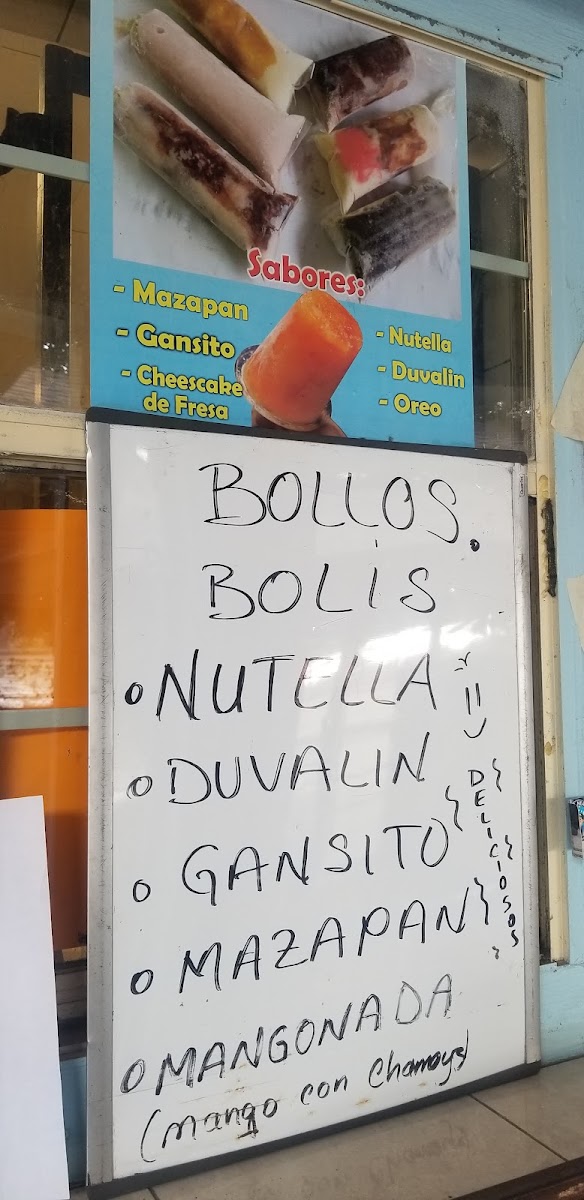 Sabores:
- Mazapan
- Gansito
- Cheescake
de Fresa
- Nutella
- Duvalin
- Oreo
BOLLOS.
BOLIS
NUTELLA
DUVALIN
GANSITO
MAZAPAN
MANGONADA
(mango con Chamoys)
DELICIOSOS